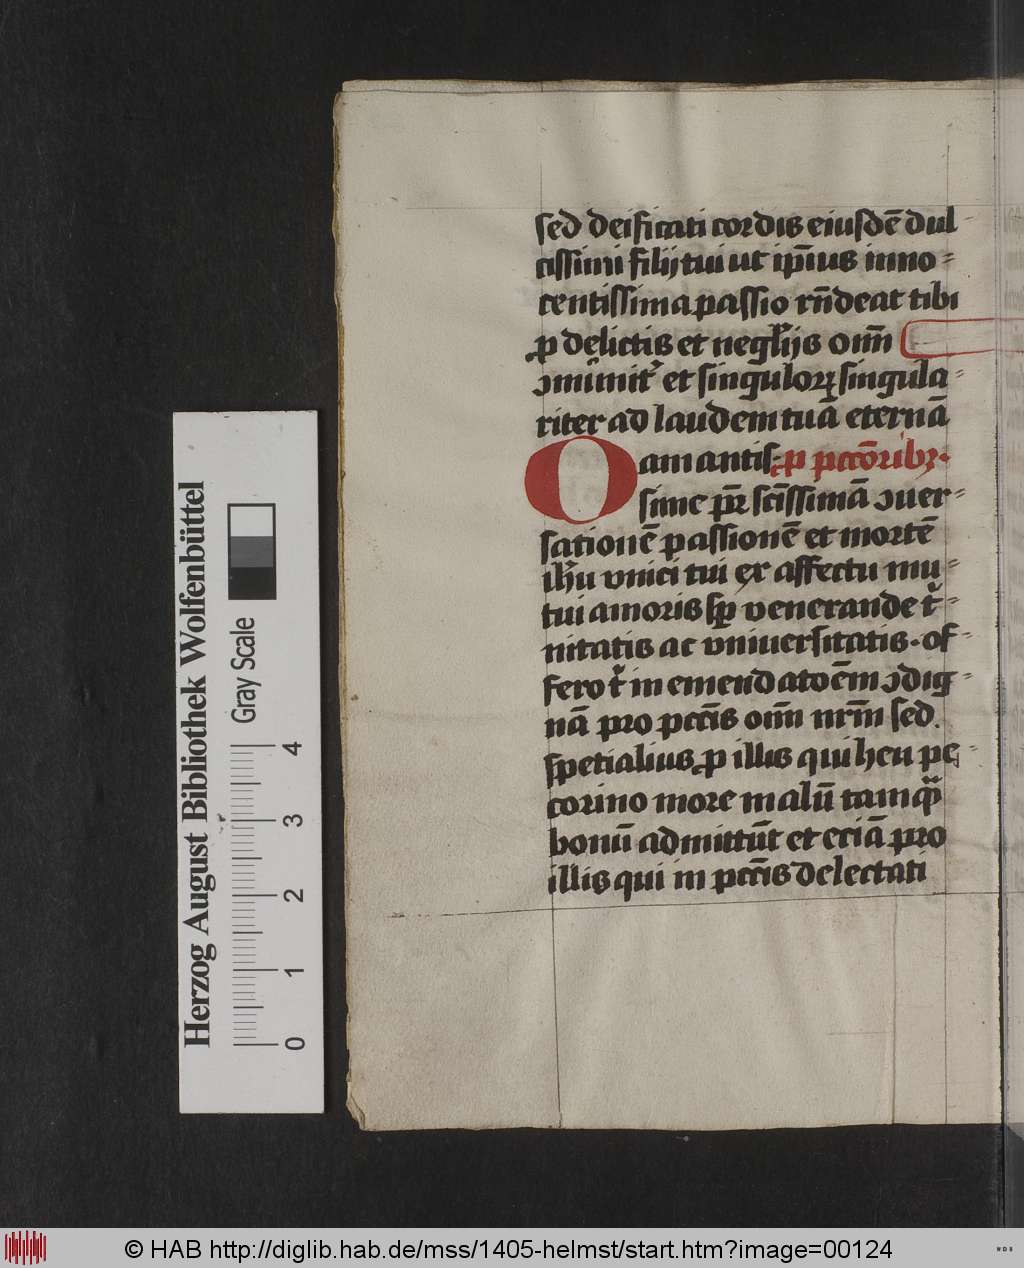 sed deificati cordis eiusdē dul
cissimi filij tui ut ip̄ius inno-
centissima passio rn̄deat tibi
ꝓ delictis et negl̄ijs om̄
ↄmūnit᷑ et singuloꝝ singula-
riter ad laudem tuā eternā
O amantis- ꝓ pctōribꝫ.
sime pr̄ sct̄issimā ↄuer-
sationē passionē et mortē
ih̄u vnici tui ex affectu mu-
tui amoris sp̄ venerande t᷑-
nitatis ac vniuersitatis. of-
fero t᷑ in emendatoēm ↄdig-
nā pro pctīs om̄ nr̄m sed.
spetialius ꝓ illis qui heu pe-
corino more malū tamꝙ
bonū admittūt et eciā pro
illis qui in pctīs delectati
Herzog August Bibliothek Wolfenbüttel
Gray Scale
0 1 2 3 4
© HAB http://diglib.hab.de/mss/1405-helmst/start.htm?image=00124